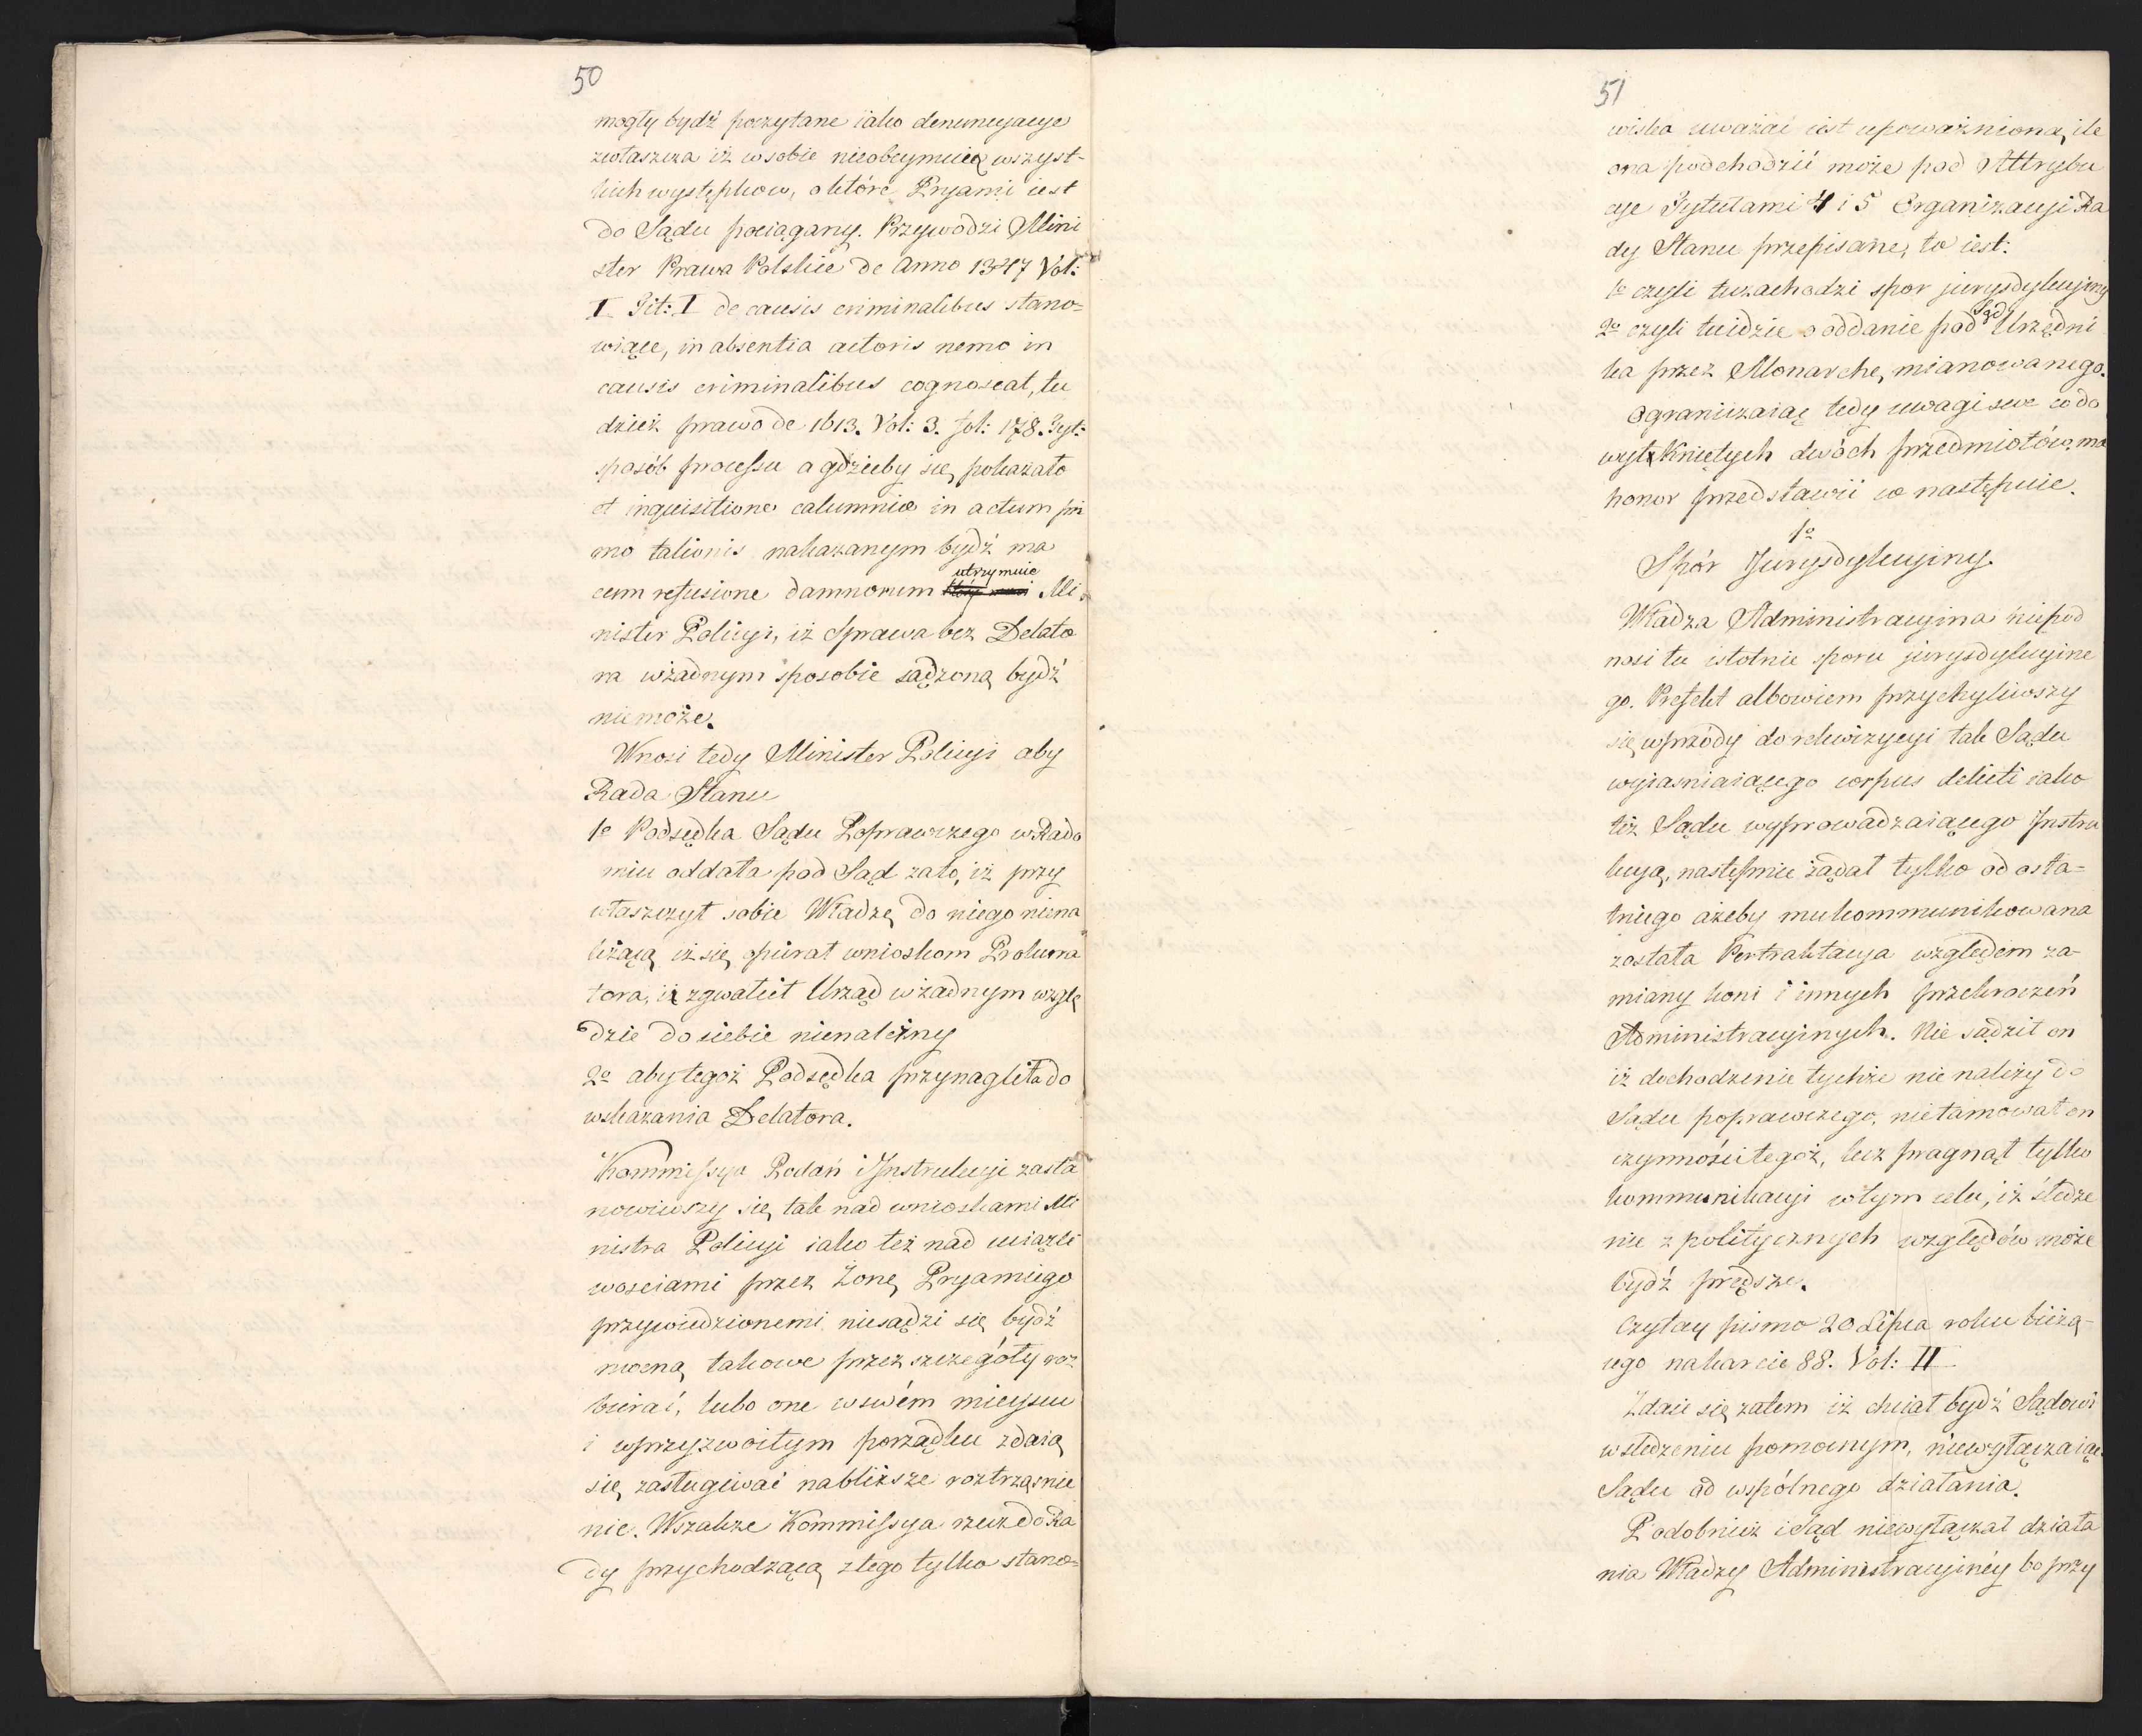 50
mogły bydź poczytane iako denuncyacye
zwłaszcza iż w sobie nieobeymuią wszyst-
kich występkow, o które Pryami iest
do Sądu pociągany. Przywodzi Mini
ster Prawa Polskie de Anno 1347 Vol:
I Tit: I de causis criminalibus stano-
wiące, in absentia actoris nemo in
causis criminalibus cognoscat, tu
dzież prawo de 1613. Vol: 3. fol: 178. Tyt:
sposób processu a gdzieby się pokazało
et inquisitione calumnia in actum pri
mo talionis nakazanym bydź ma
cum refusione damnorum utrzymuie Mi-
nister Policyi, iż Sprawa bez Delato
ra w żadnym sposobie sądzoną bydź
nie może.
Wnosi tedy Minister Policyi aby
Rada Stanu
1o Podsędka Sądu Poprawczego w Rado
miu oddała pod Sąd za to, iż przy
właszczył sobie Władzę do niego niena
leżącą iż się opierał wnioskom Prokura
tora, iż zgwałcił Urząd w żadnym wzglę
dzie do siebie nienależny
2o aby tegoż Podsędka przynagliła do
wskazania Delatora.
Kommissya Podań i Instrukcyi zasta
nowiwszy się tak nad wnioskami Mi
nistra Policyi iako też nad uciążli
wościami przez Żonę Pryamiego
przywiedzionemi niesądzi się bydź
mocną takowe przez szczegóły roz
bierać, lubo one w swém mieyscu
i w przyzwoitym porządku zdaią
się zasługiwać na bliższe roztrząśnie
nie. Wszakże Kommissya rzecz do Ra
dy przychodzącą z tego tylko stano-
51
wiska uważać iest upoważnioną, ile
ona podchodzić może pod Attrybu
cye Tytułami 4 i 5 Organizacyi Ra
dy Stanu przepisane, to iest:
1o czyli tu zachodzi spor jurysdykcyiny
2o czyli tu idzie o oddanie pod Sąd Urzędni
ka przez Monarchę, mianowanego.
Ograniczaiąc tedy uwagi swe co do
wytkniętych dwóch przedmiotów, ma
honor przedstawić co następuie.
1o
Spór Jurysdykcyiny.
Władza Administracyina niepod
nosi tu istotnie sporu jurysdykcyine
go. Prefekt albowiem przychyliwszy
się wprzódy do rekwizycyi tak Sądu
wyiaśniaiącego corpus delicti iako
też Sądu wyprowadzaiącego Instru
kcyą, następnie żądał tylko od osta-
tniego ażeby mu kommunikowana
została Pertraktacya względem za-
miany koni i innych przekroczeń
Administracyinych. Nie sądził on
iż dochodzenie tychże nie należy do
Sądu poprawczego, nie tamował on
czynności tegoż, lecz pragnął tylko
kommunikacyi w tym celu, iż śledze
nie z politycznych względów może
bydź prędsze.
Czytay pismo 20 Lipca roku bieżą-
cego na karcie 88. Vol: II
Zdaie się zatem iż chciał bydź Sądowi
w śledzeniu pomocnym, niewyłączaiąc
Sądu od wspólnego działania.
Podobnież i Sąd niewyłączał działa
nia Władzy Administracyinéy bo przy